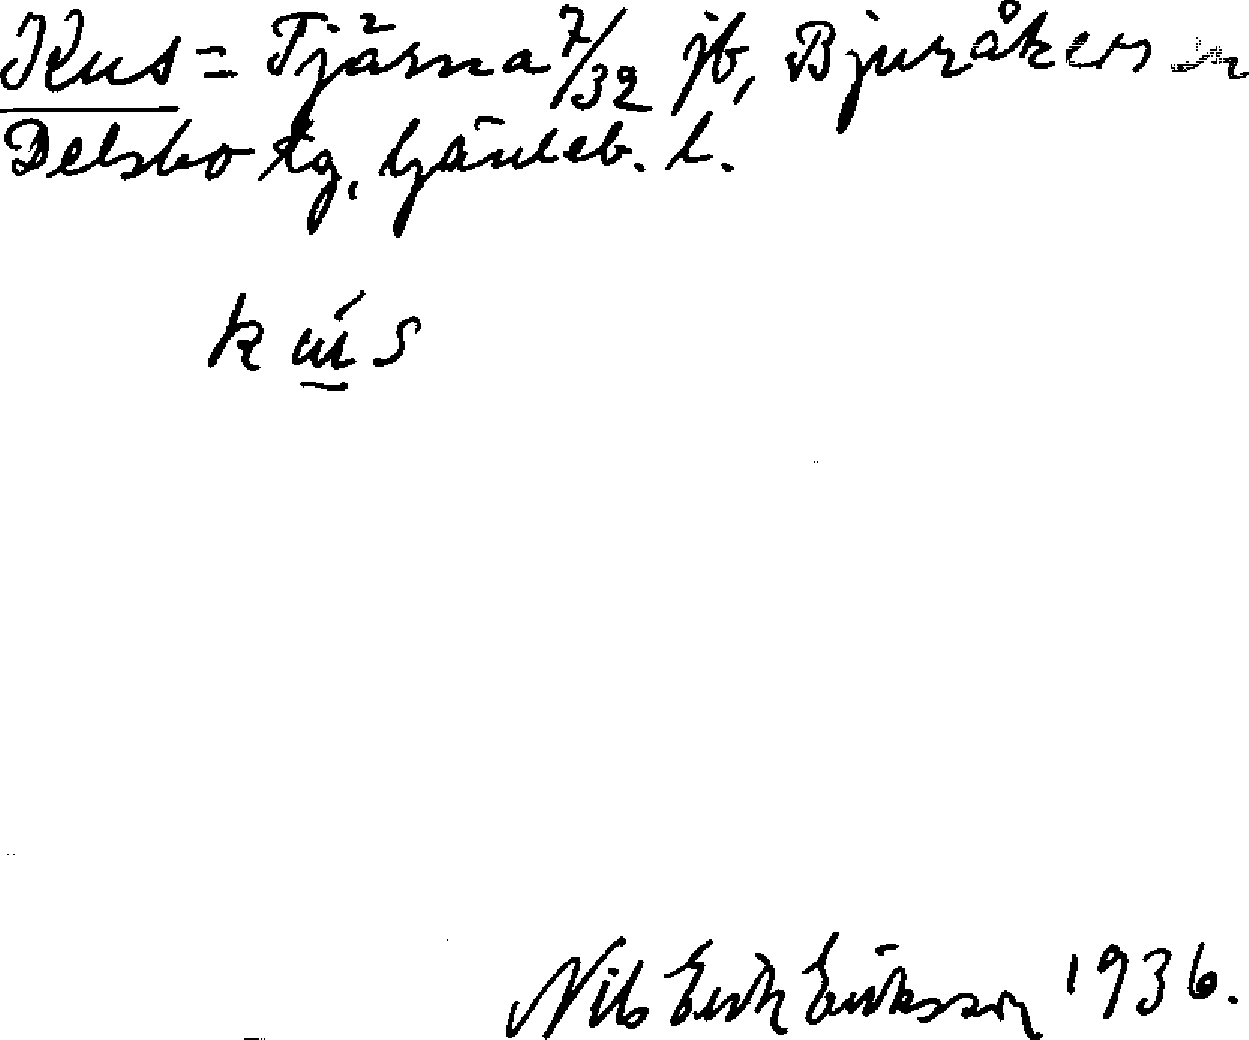 Kus = Tjärna 7/32 jb, Bjuråkers sn
Delsbo tg, Gävleb. l.
kus
Nils Erik Eriksson 1936.